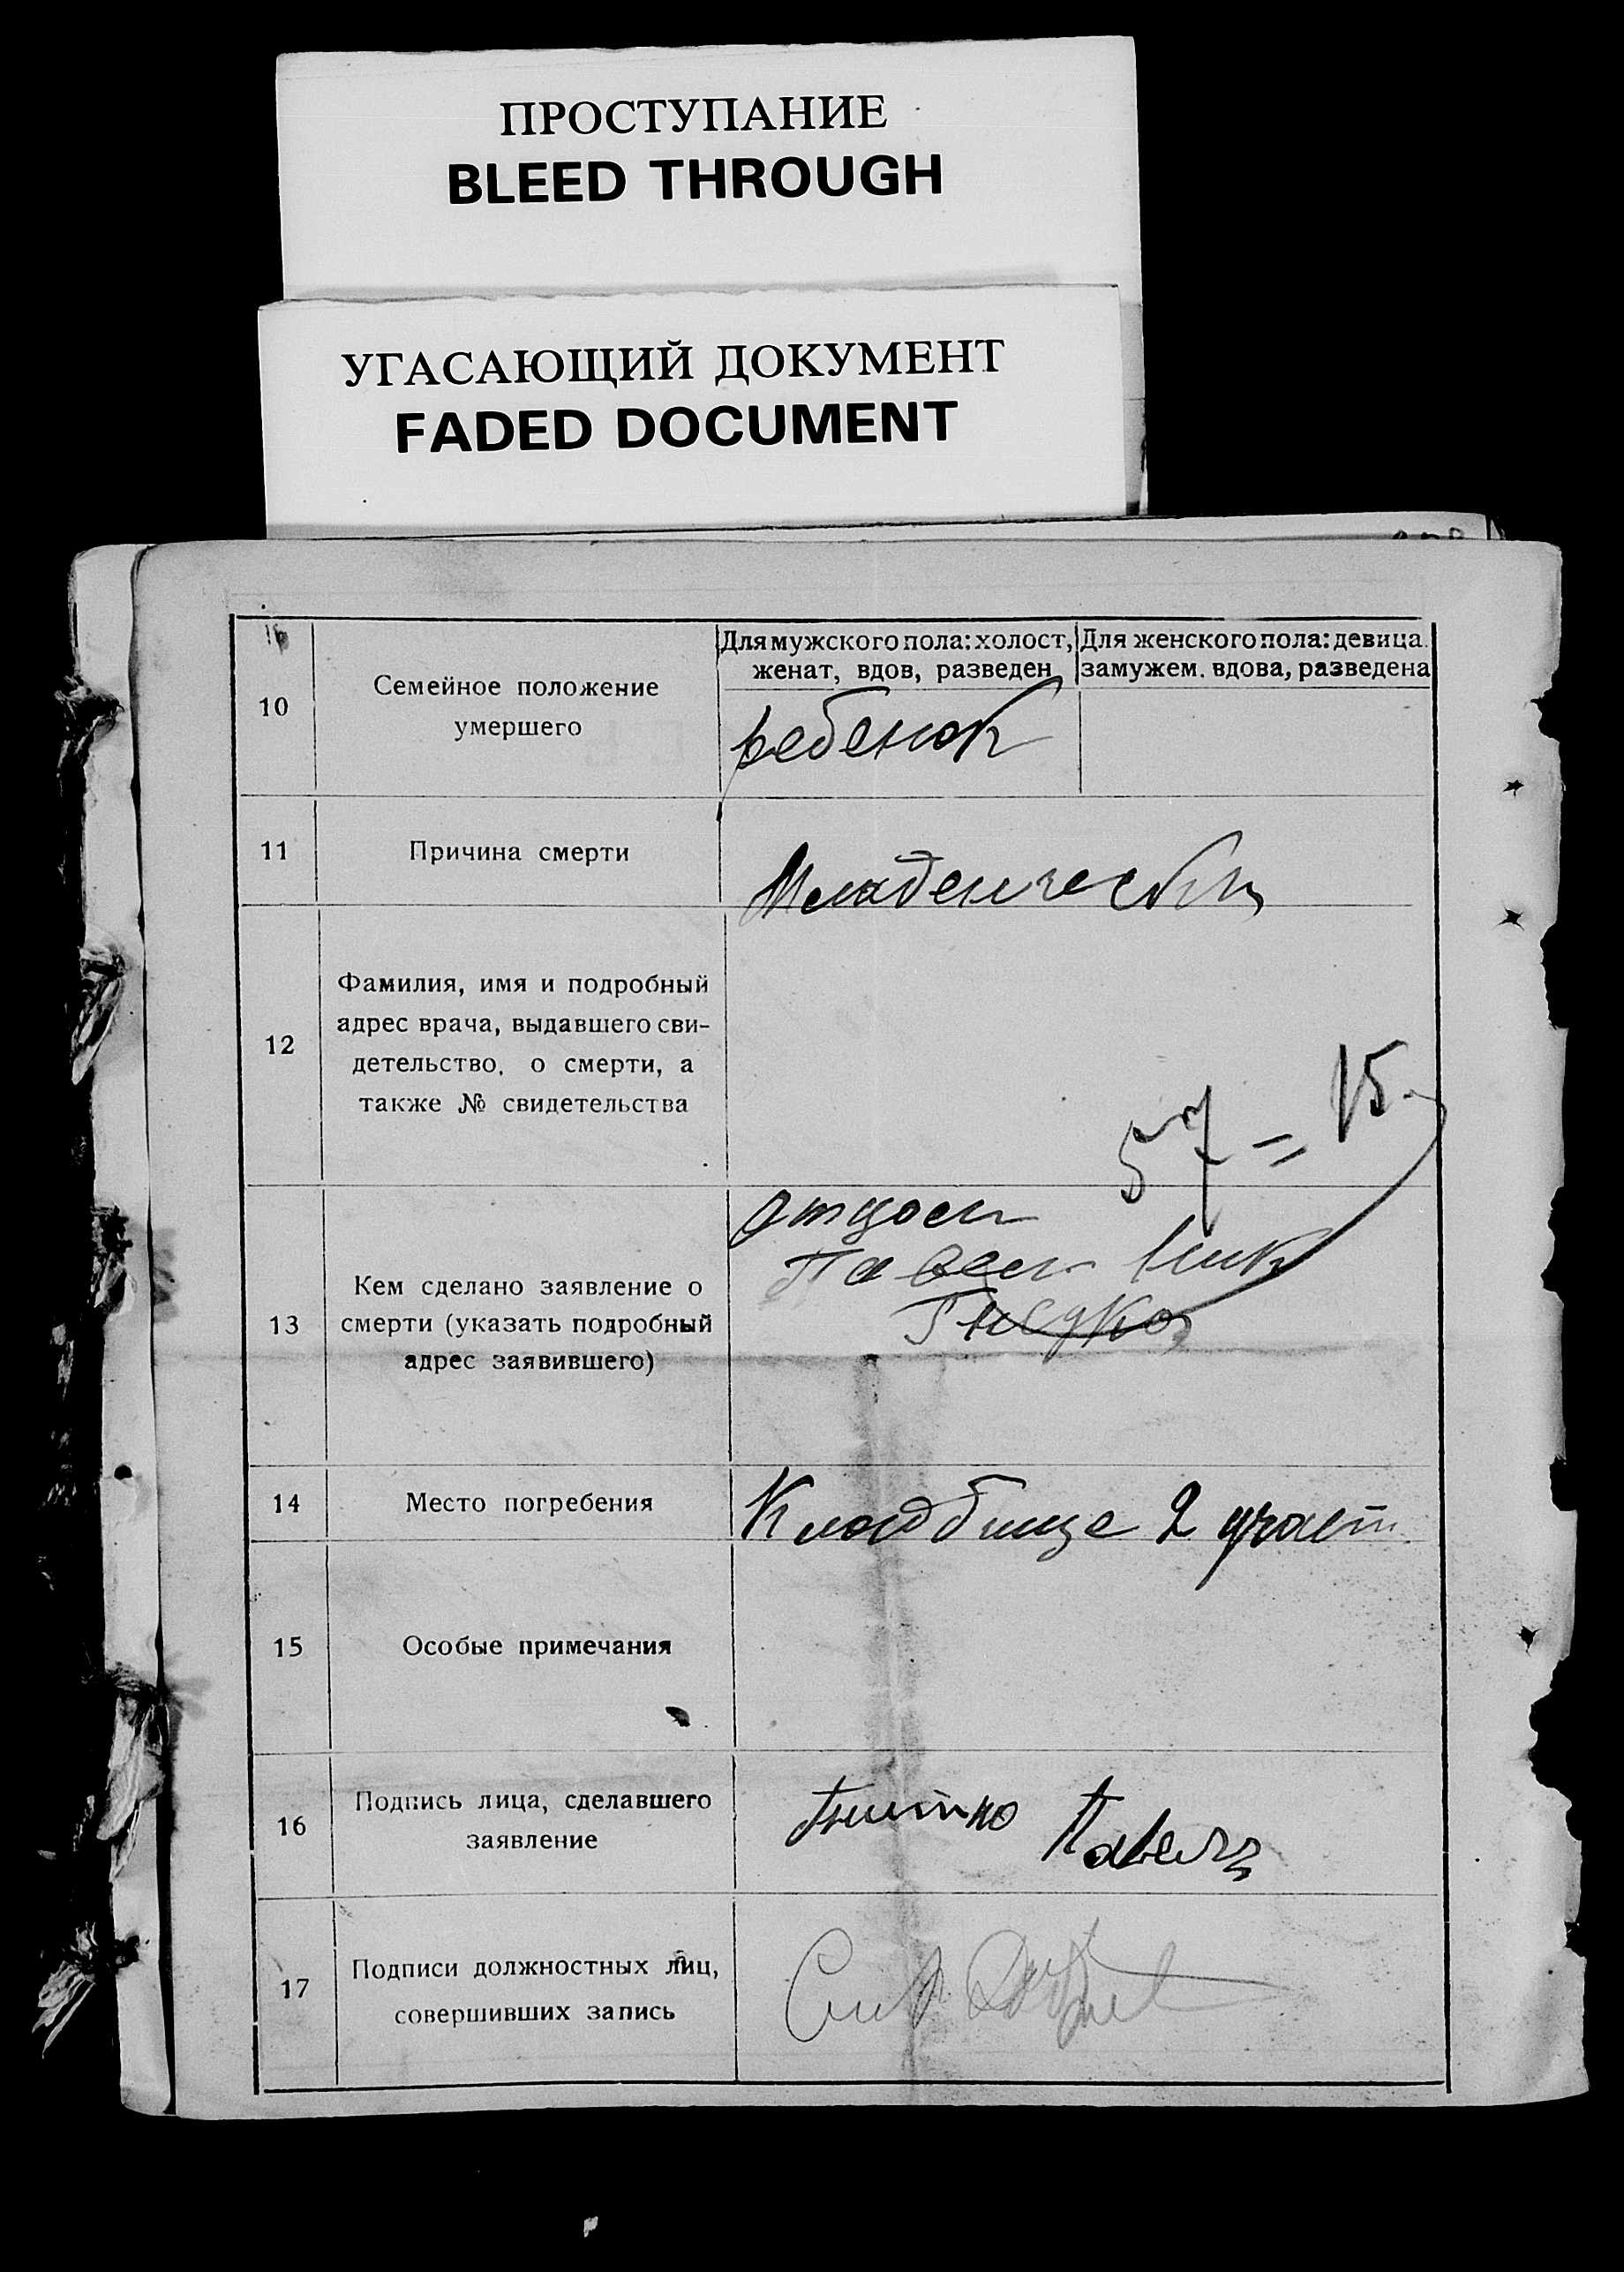 ПРОСТУПАНИЕ
BLEED THROUGH
УГАСАЮЩИЙ ДОКУМЕНТ
FADED DOCUMENT
10
Семейное положение
умершего
Для мужского пола: холост,
женат, вдов, разведен
Для женского пола: девица
замужем. вдова, разведена
ребенок
11
Причина смерти
12
Фамилия, имя и подробный
адрес врача, выдавшего сви-
детельство, о смерти, а
также № свидетельства
57 = 15
13
Кем сделано заявление о
смерти (указать подробный
адрес заявившего)
отцом
14
Место погребения
Кладбище 2 участ
15
Особые примечания
16
Подпись лица, сделавшего
заявление
Павел
17
Подписи должностных лиц,
совершивших запись